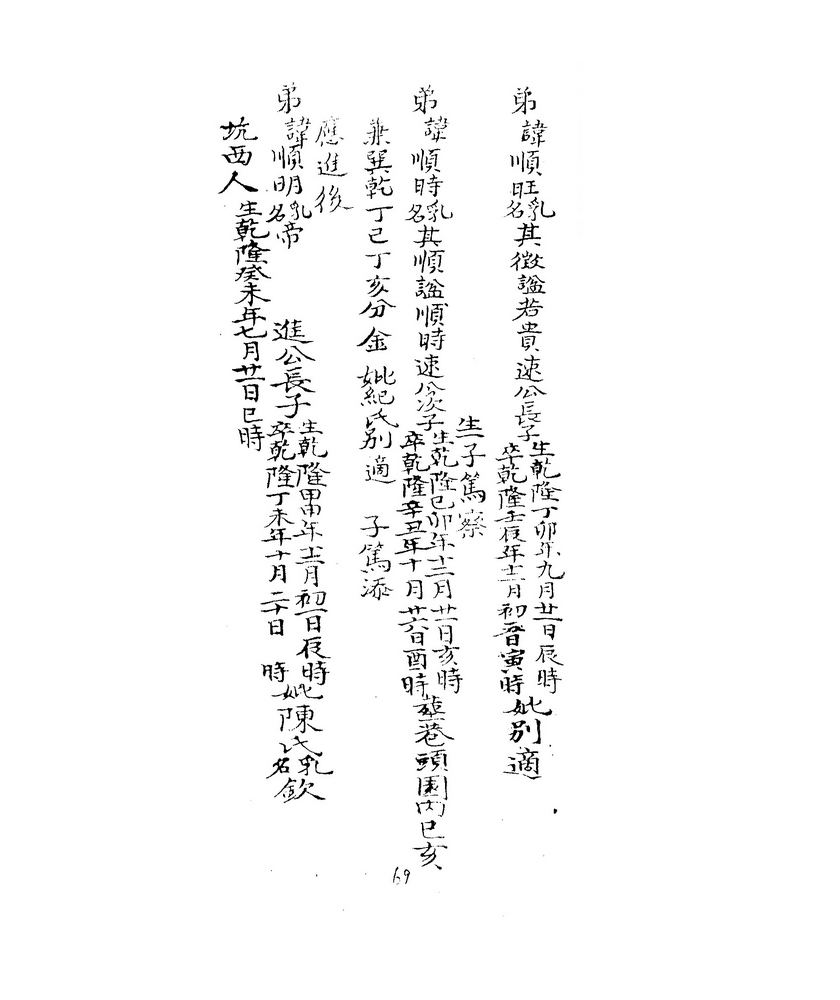 弟諱順旺乳名其徵諡若貴速公長子生乾隆丁卯年九月廿一日辰時卒乾隆壬辰年十二月初 日寅時妣別適
生一子篤察
弟諱順時乳名其順諡順時速公次子生乾隆己卯年十二月廿一日亥時卒乾隆辛丑年十月廿六日酉時葬巷頭園內巳亥
兼巽乾丁巳丁亥分金 妣紀氏別適 子篤添
應進後
弟諱順明乳名帝 進公長子生乾隆甲申年十二月初一日辰時卒乾隆丁未年十月二十日 時妣陳氏乳名欽
坑西人生乾隆癸未年七月廿一日巳時
69